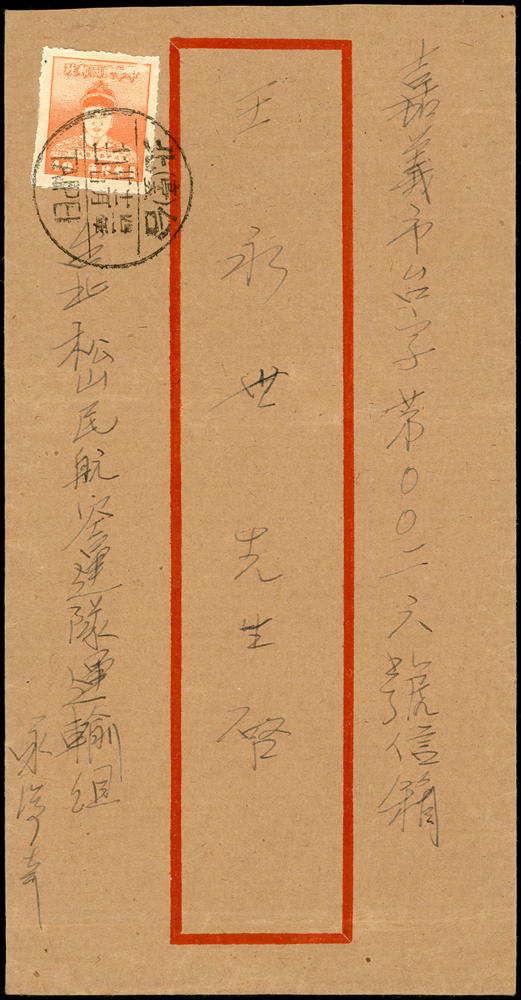 嘉義市台字第00二六號信箱
王永世先生啓
台北松山民航空運隊運輸組
中華民國郵政
TAIPEI